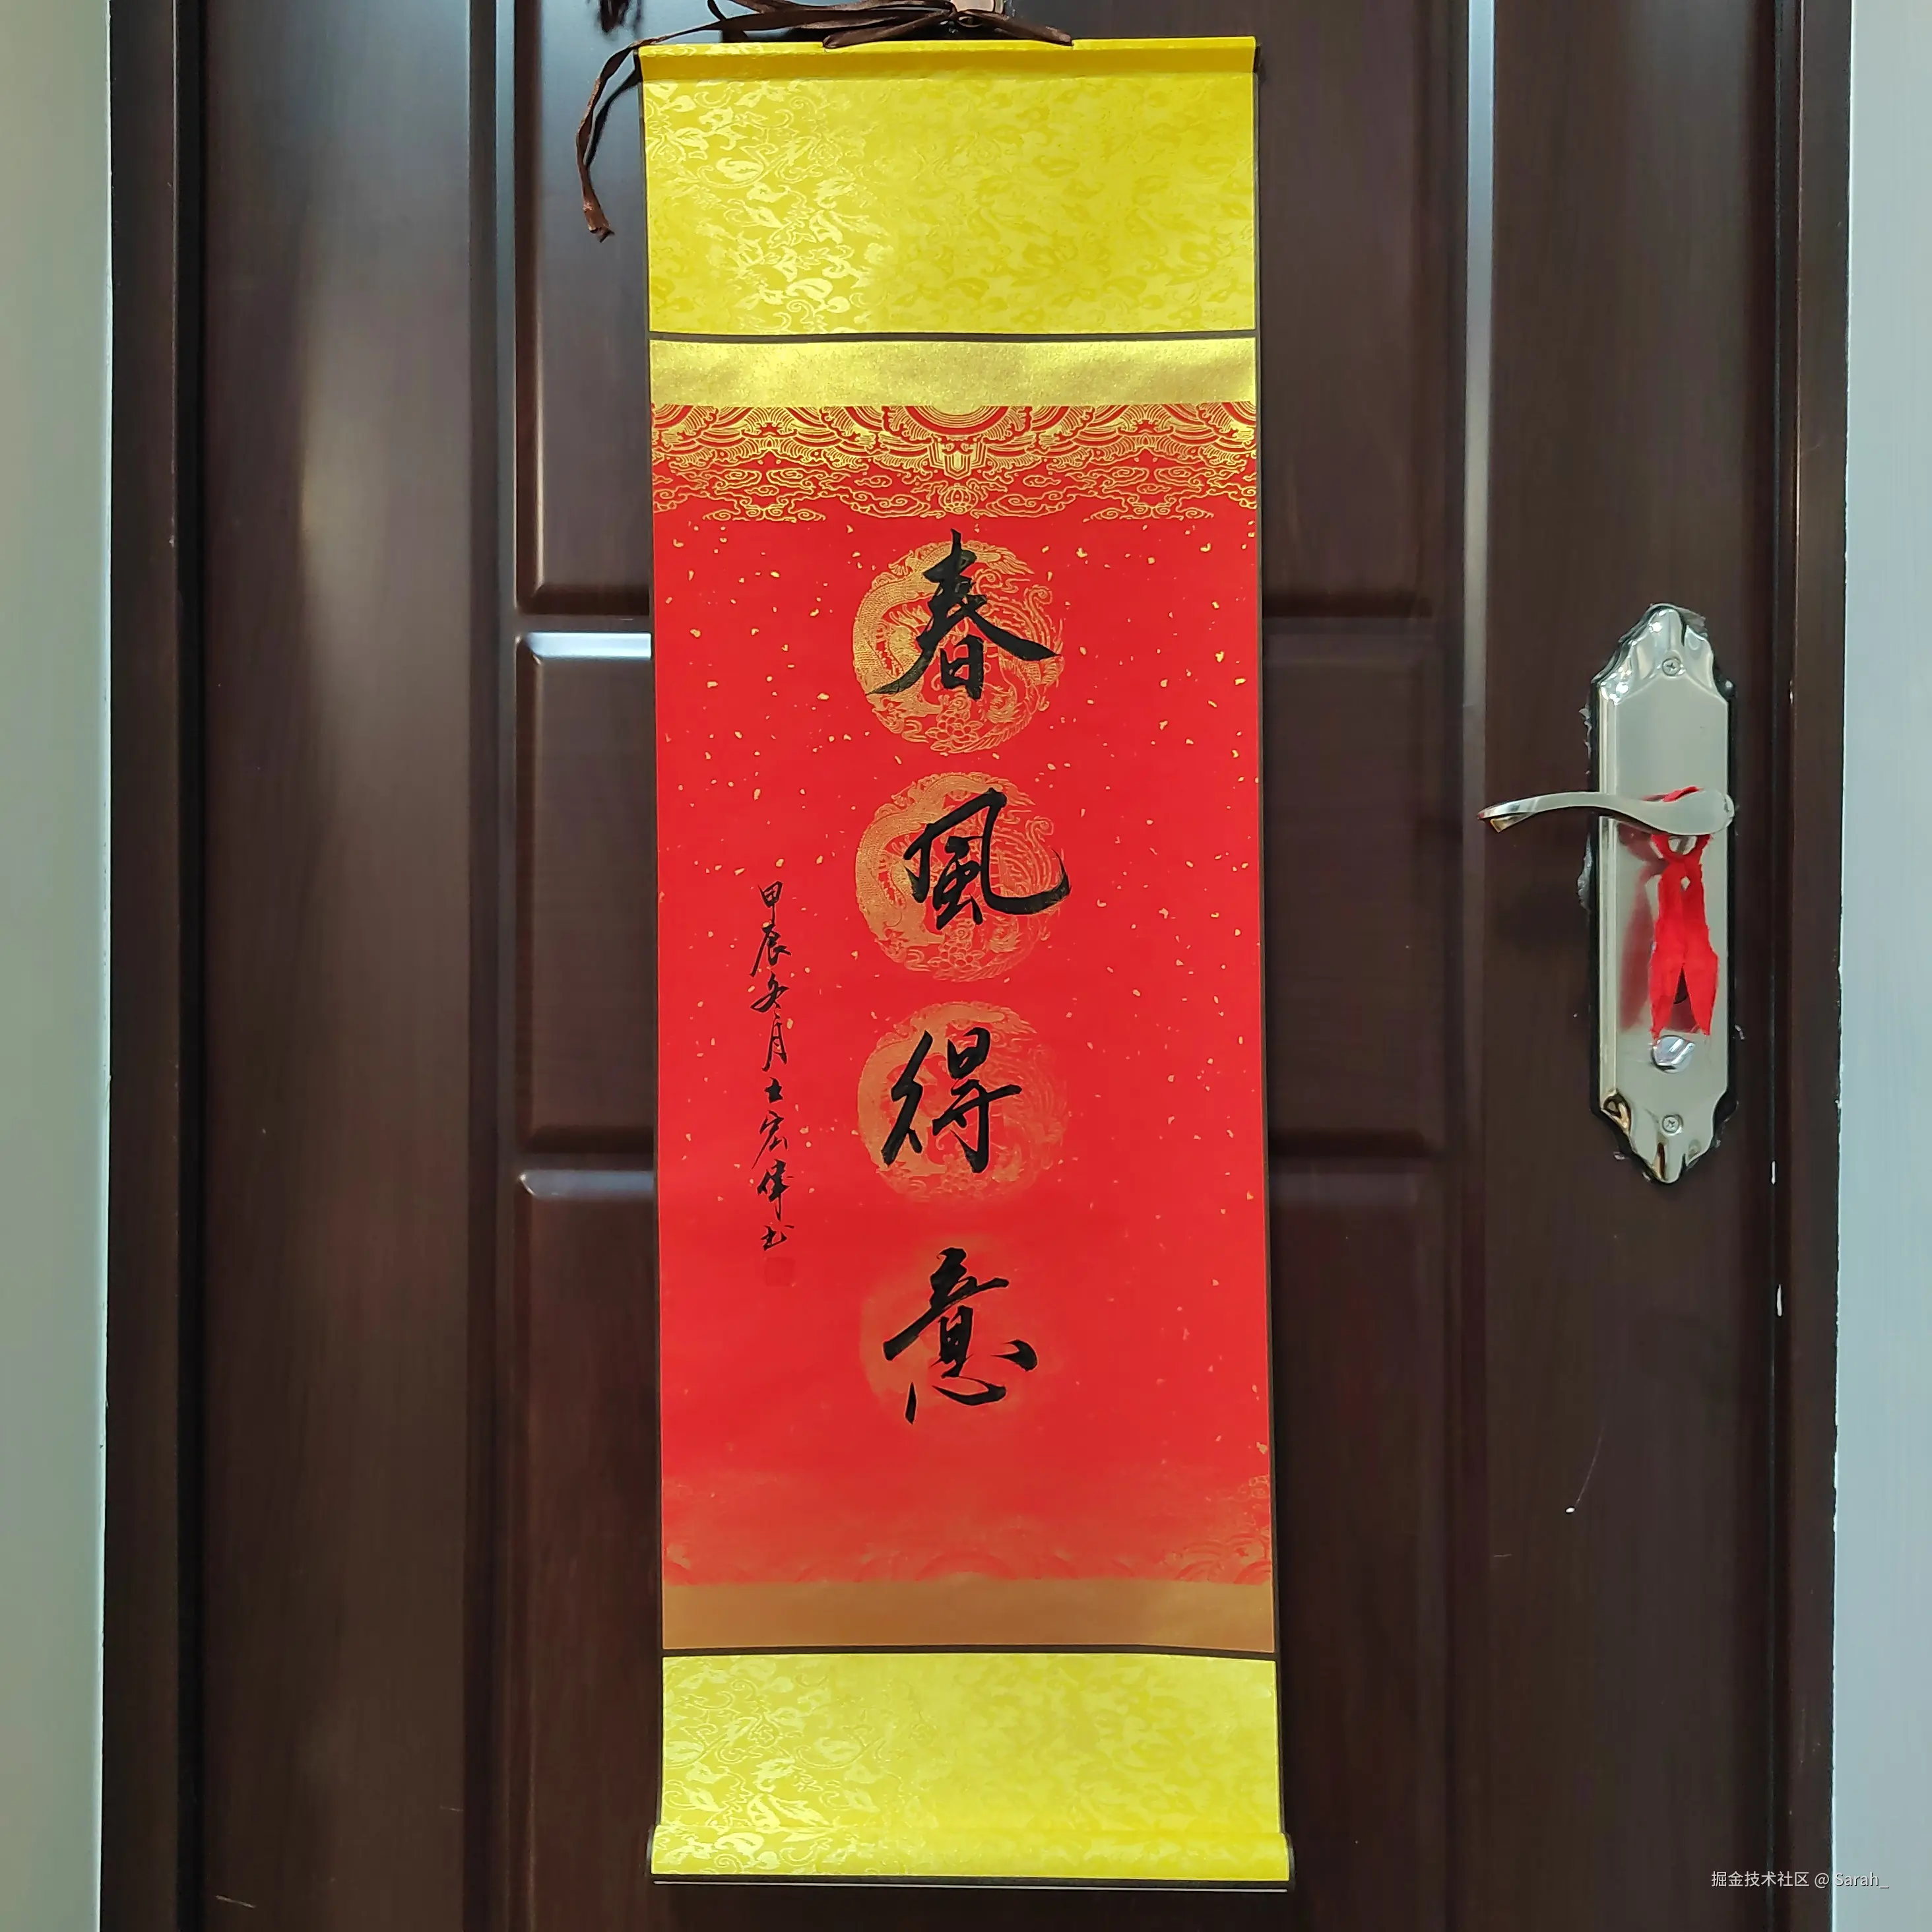 春風得意
甲辰冬月士宏偉书
掘金技术社区 @ Sarah_